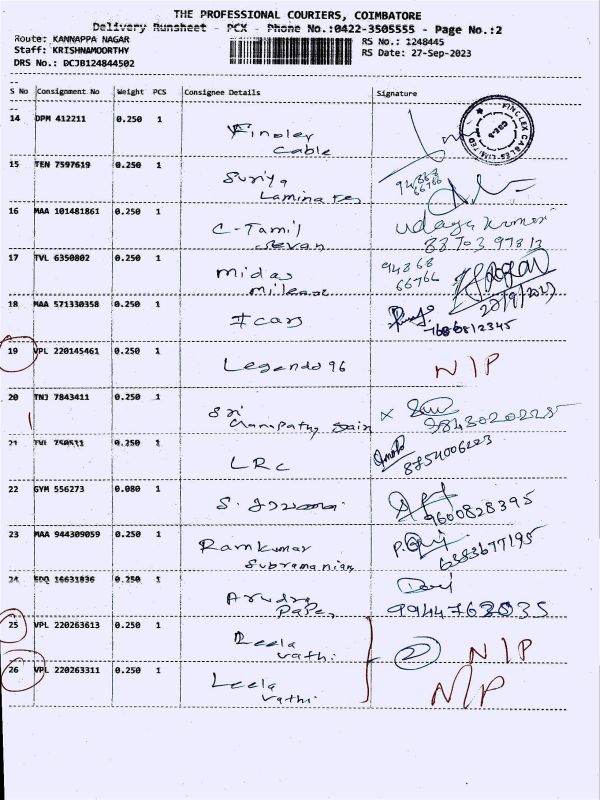 THE PROFESSIONAL COURIERS, COIMBATORE
Delivery Runsheet - PCX - Phone No.:0422-3505555 - Page No.:2
Route: KANNAPPA NAGAR
RS No.: 1248445
Staff: KRISHNAMOORTHY
RS Date: 27-Sep-2023
DRS No.: DCJB124844502
S No Consignment No Weight PCS Consignee Details Signature
14 DPM 412211 0.250 1
Cable
FINOLEX CABLES LIMITED
15 TEN 7597619 0.250 1 Suriya
Laminates
94868
66766
16 MAA 101481861 0.250 1 C-Tamil
Selvan
udaya kumar
88703 97813
17 TVL 6350802 0.250 1 Midas
94868
66766
18 MAA 571330358 0.250 1 Icas
7686812345
19 VPL 220145461 0.250 1 Legends 96 N/P
20 TNJ 7843411 0.250 1 Sri
X
9843020225
21 TVL 750511 0.250 1 LRC
8754006223
22 GYM 556273 0.080 1 S.
9600828395
23 MAA 944309059 0.250 1 Ramkumar
Subramanian
6383677195
24 EDQ 16631836 0.250 1 Arudra
Paper
9944763035
25 VPL 220263613 0.250 1 Leela
vathi
2 N/P
26 VPL 220263311 0.250 1 Leela
vathi
N/P